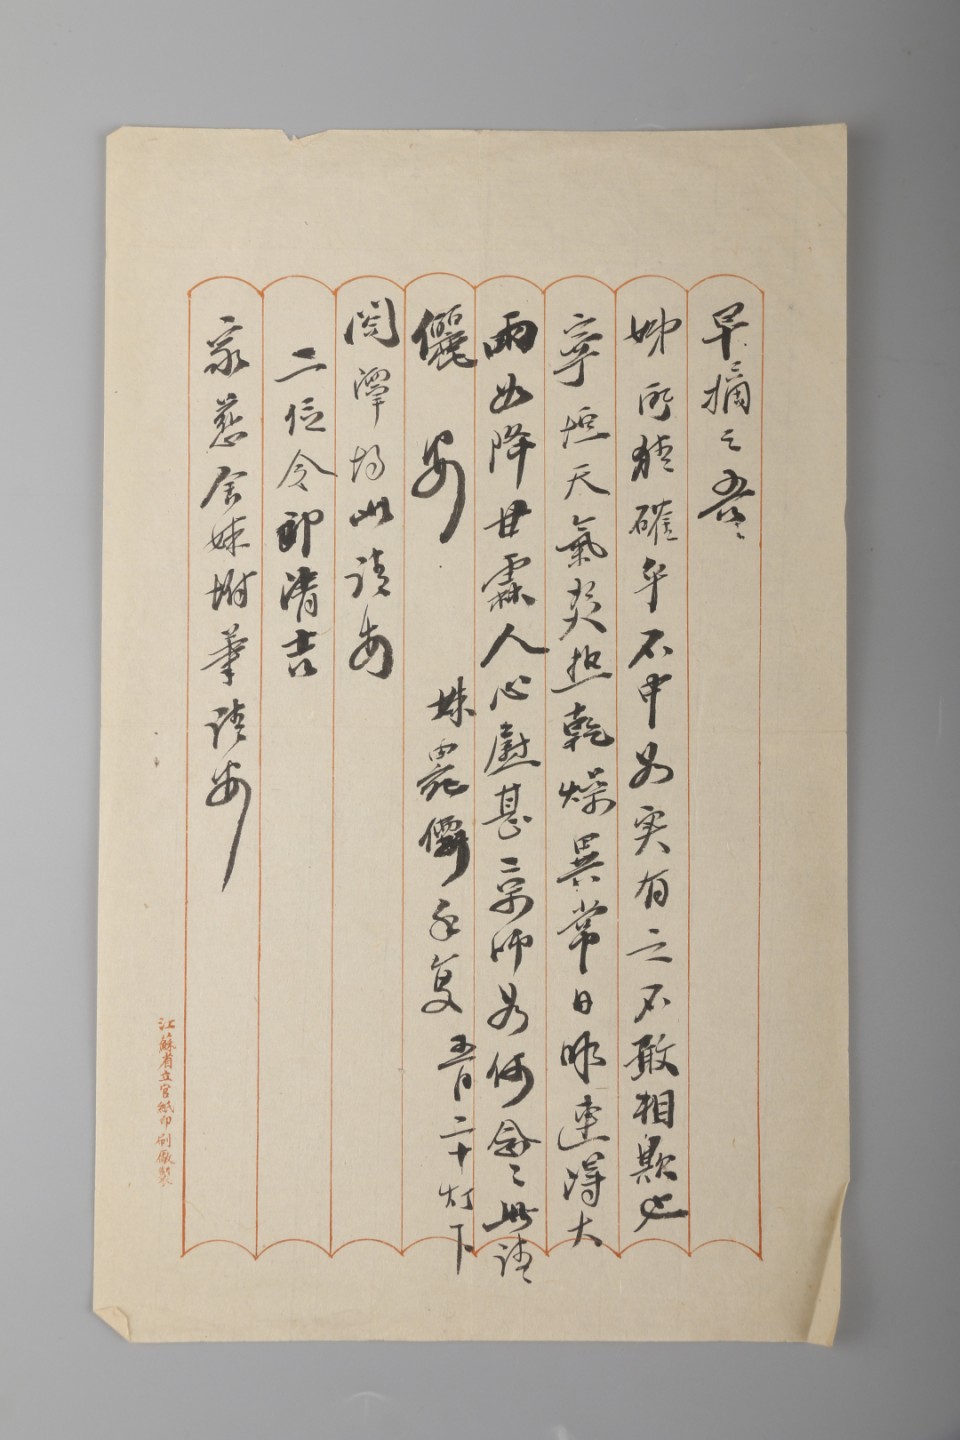 早摘之吾
姊所猜確乎不中如实有之不敢相欺也
寧垣天氣炎熱乾燥異常日昨連得大
雨如降甘霖人心慰甚京师如何念念此請
儷安
妹 手复 五月二十灯下
闰潭均此请安
二位令郎清吉
家慈舍妹坿筆請安
江蘇省立官紙印刷厰製